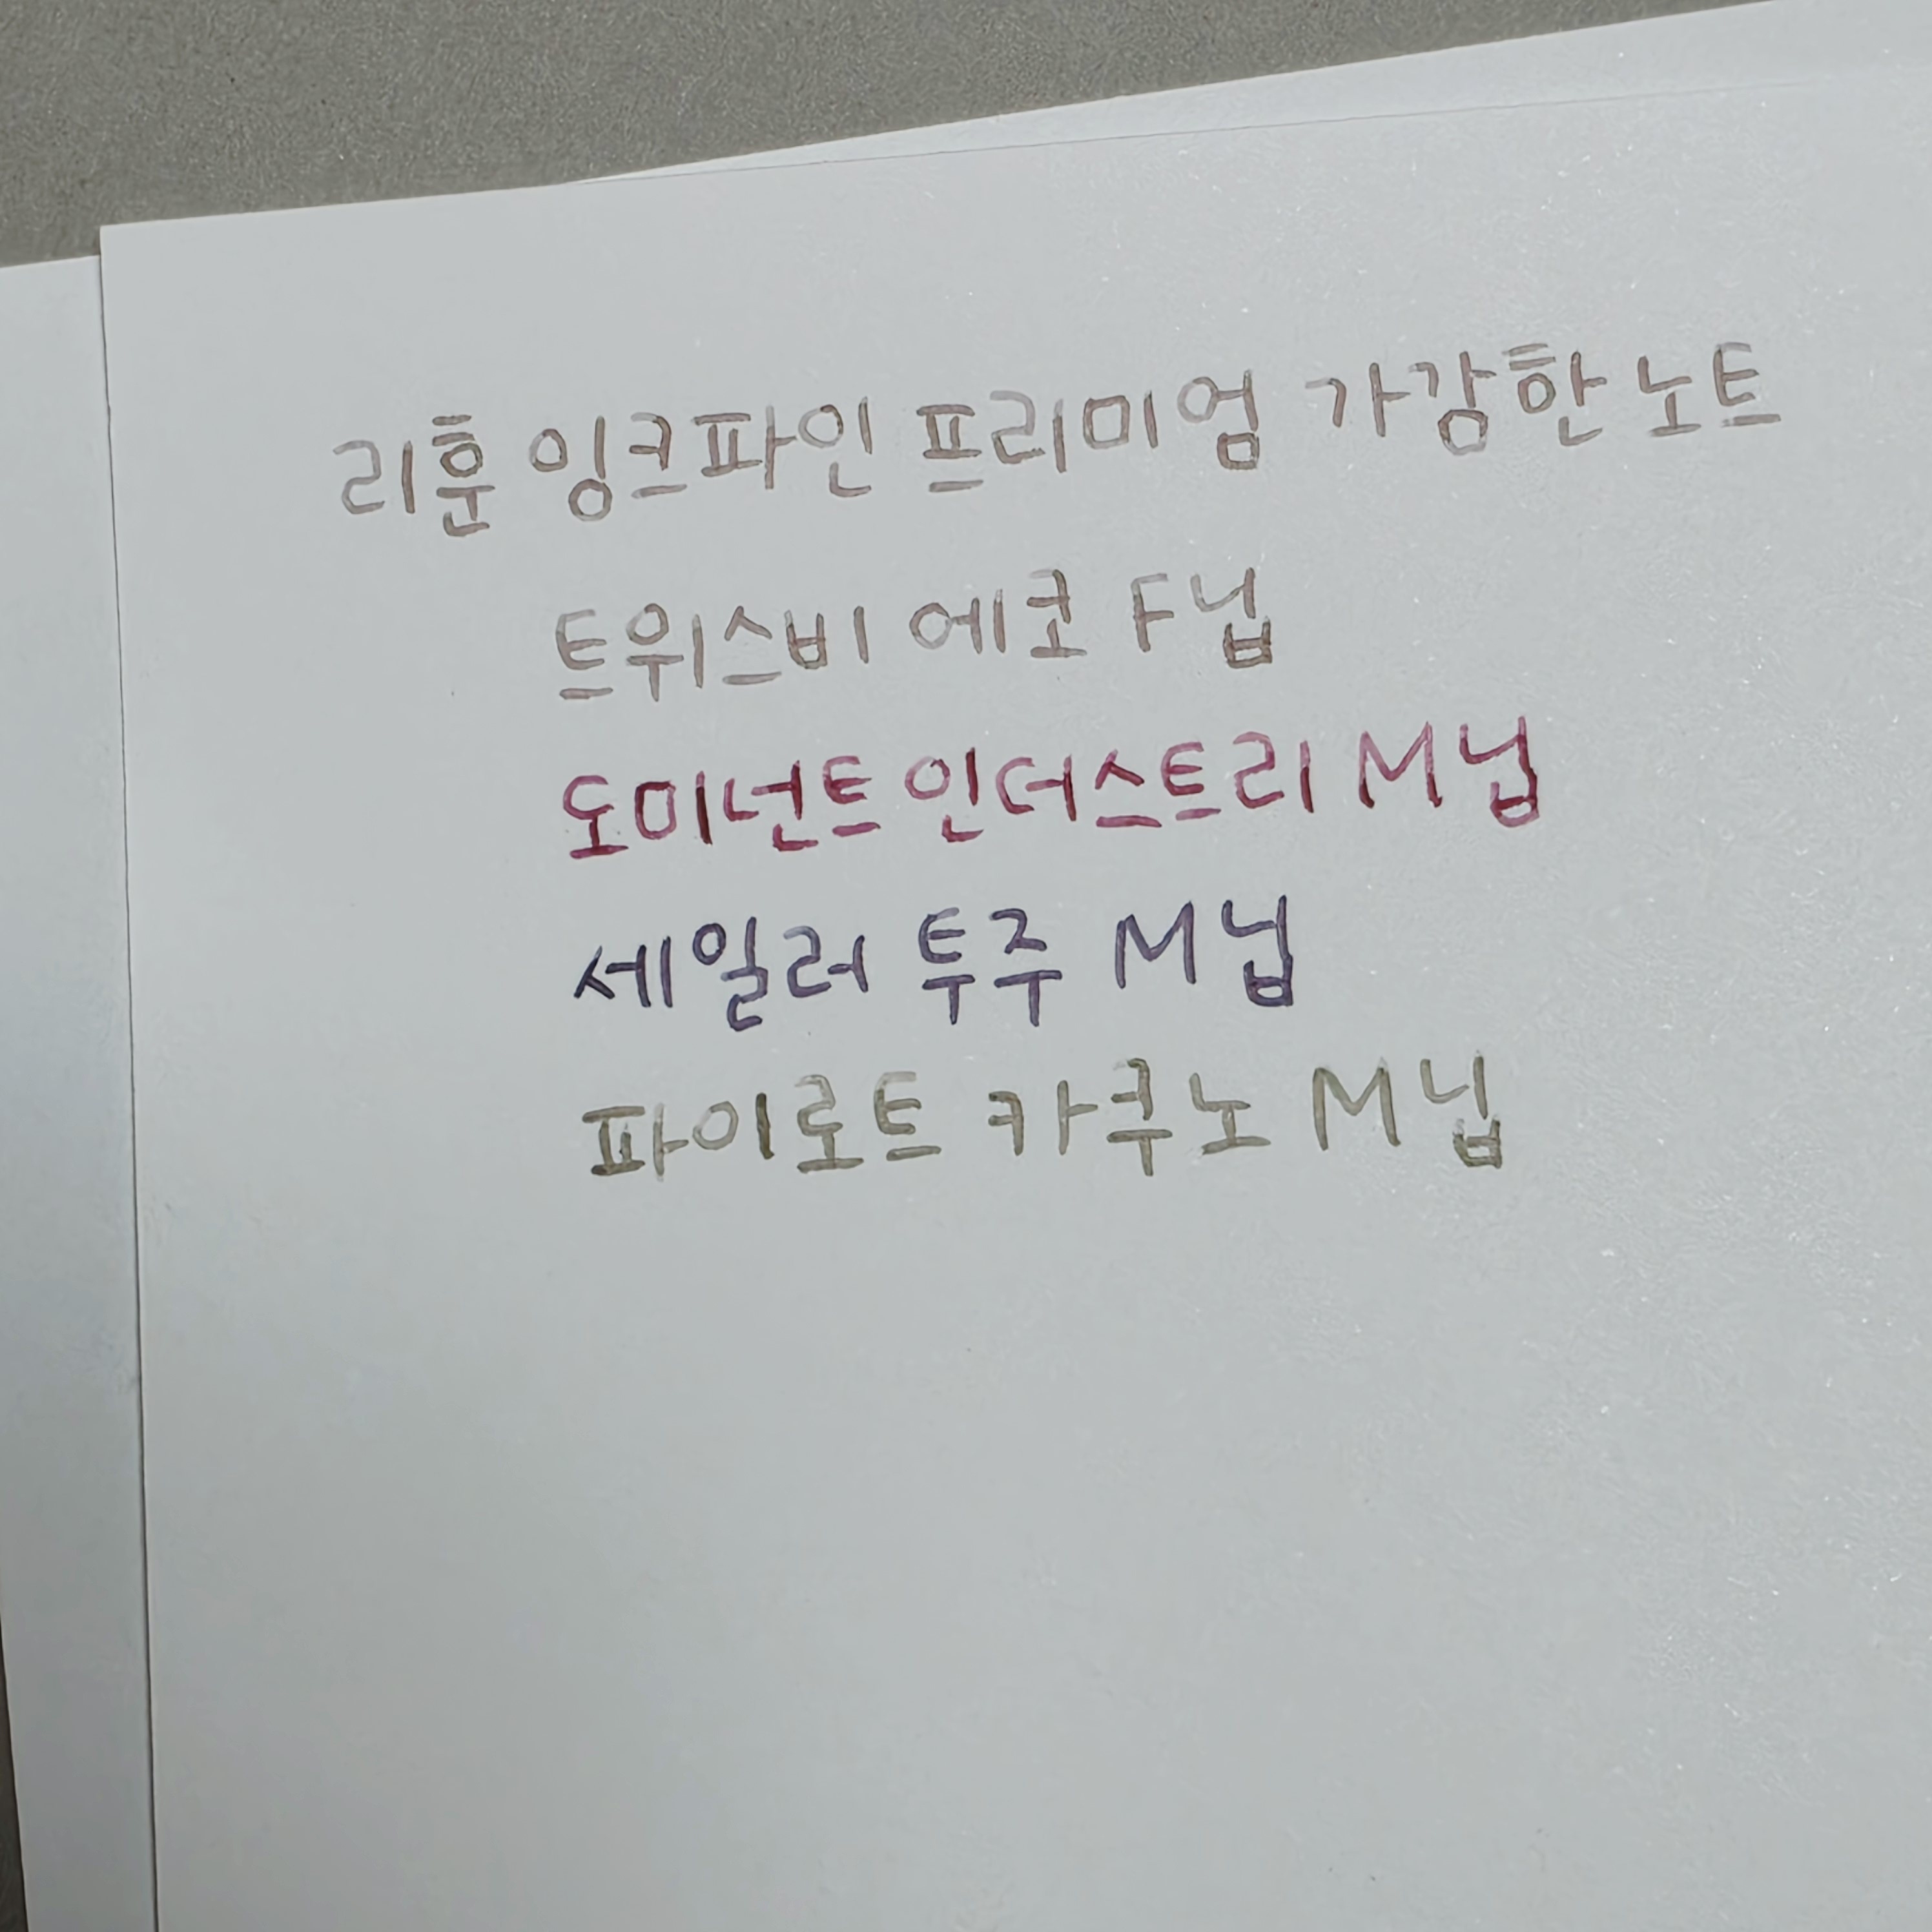 리훈 잉크파인 프리미엄 가감한 노트
트위스비 에코 F닙
도미넌트인더스트리 M닙
세일러 투주 M닙
파이로트 카쿠노 M닙